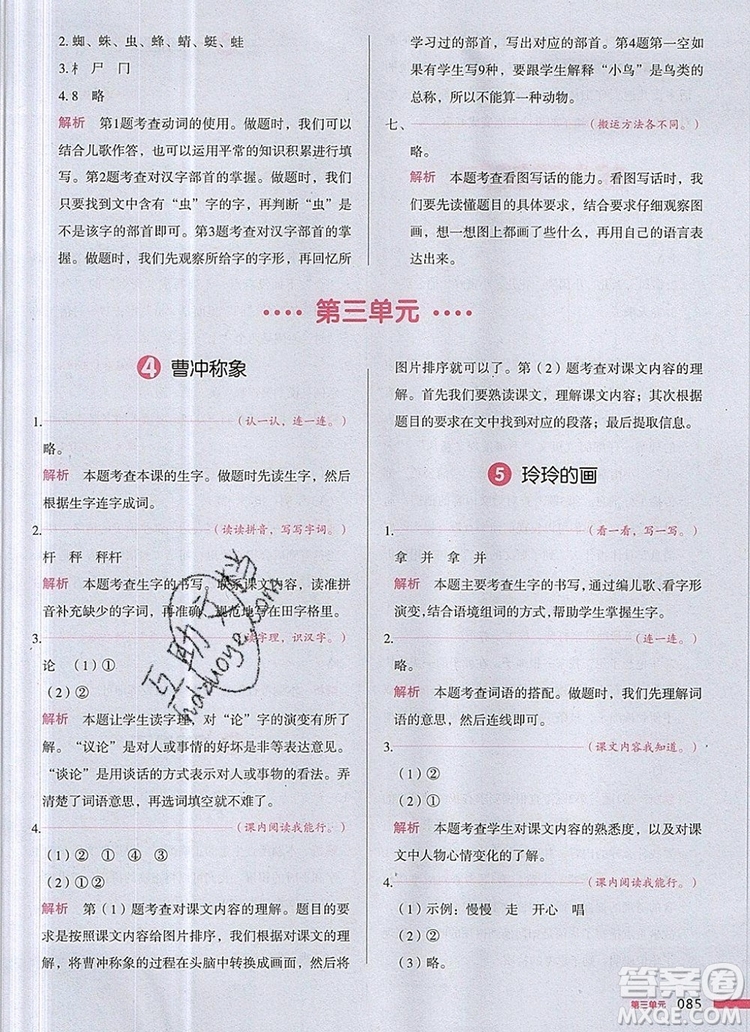 2. 蜘、蛛、虫、蜂、蜻、蜓、蛙
3. 木 尸 冂
4. 8 略
解析 第1题考查动词的使用。做题时，我们可以
结合儿歌作答，也可以运用平常的知识积累进行填
写。第2题考查对汉字部首的掌握。做题时，我们只
要找到文中含有“虫”字的字，再判断“虫”是不
是该字的部首即可。第3题考查对汉字部首的掌握。
做题时，我们先观察所给字的字形，再联系我们
学习过的部首，写出对应的部首。第4题第一空如
果有学生写9种，要跟学生解释“小鸟”是鸟类的
总称，所以不能算作单独的一种动物。
七、（搬运方法各不同。）
略。
解析 本题考查看图写话的能力。看图写话时，我
们要先读懂题目的具体要求，结合要求仔细观察图
画，想一想图上都画了些什么，再用自己的语言表
达出来。
第三单元
4 曹冲称象
1.（认一认，连一连。）
略。
解析 本题考查本课的生字。做题时先读生字，然后
根据生字连字成词。
2.（读读拼音，写写字词。）
杆 秤 秤杆
解析 本题考查生字的书写。联系课文内容，读准拼
音补充缺少的字词，再准确、规范地写在田字格里。
3.（读字理，识汉字。）
论 （1）①
（2）①
解析 本题让学生读字理，对“论”字的演变有所了
解。“议论”是对人或事情的好坏是非等表示意见。
“谈论”是用谈话的方式表示对人或事物的看法。弄
清楚了词语意思，再选词填空就不难了。
4.（课内阅读我能行。）
（1）② ① ④ ③
（2）①②
解析 第（1）题考查对课文内容的理解。题目的要
求是按照课文内容给图片排序，我们要根据课文的理
解，将曹冲称象的过程在头脑中转换成画面，然后给
图片排序就可以了。第（2）题考查对课文内容的理
解。首先我们要熟读课文，理解课文内容；其次根据
题目的要求在文中找到对应的段落；最后提取信息。
5 玲玲的画
1.（看一看，写一写。）
拿 并 拿 并
解析 本题主要考查生字的书写，通过编儿歌、看字形
演变，结合语境组词的方式，帮助学生掌握生字。
2.（连一连。）
略。
解析 本题考查词语的搭配。我们可以先理解词
语的意思，然后连线即可。
3.（课文内容我知道。）
（1）②
（2）②
解析 本题考查学生对课文内容的熟悉度，以及对课
文中人物心情变化的了解。
4.（课内阅读我能行。）
（1）示例：慢慢 走 开心 唱
（2）②
（3）略。
互助文档
hdzuoye.com
第三单元 085
答案圈
MXQE.COM